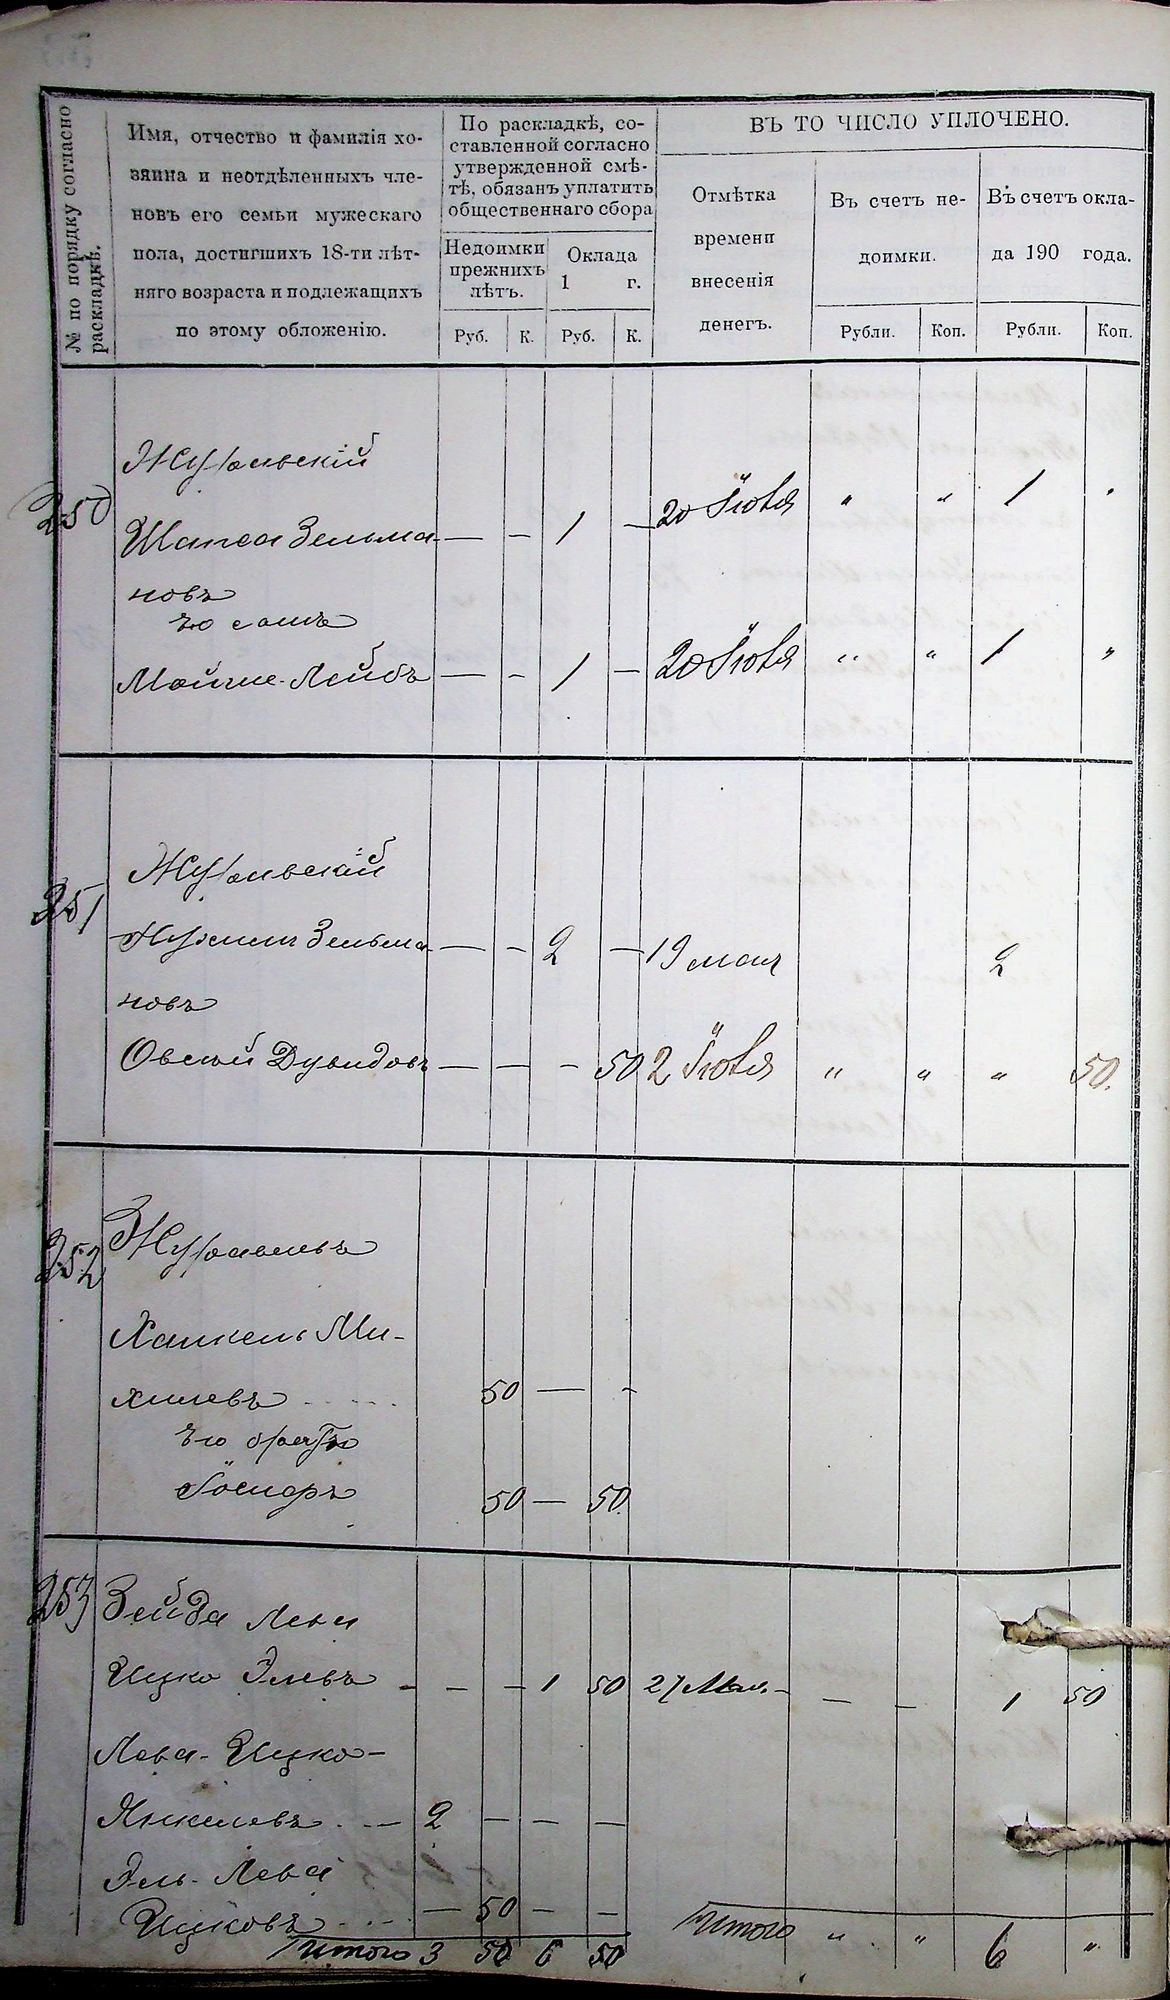 № по порядку согласно раскладкѣ.
Имя, отчество и фамилія хо-
зяина и неотдѣленныхъ чле-
новъ его семьи мужескаго
пола, достигшихъ 18-ти лѣт-
няго возраста и подлежащихъ
по этому обложенію.
По раскладкѣ, со-
ставленной согласно
утвержденной смѣ-
тѣ, обязанъ уплатить
общественнаго сбора
Недоимки
прежнихъ
лѣтъ.
Оклада
1 г.
Руб. К. Руб. К.
ВЪ ТО ЧИСЛО УПЛОЧЕНО.
Отмѣтка
времени
внесенія
денегъ.
Въ счетъ не-
доимки.
Въ счетъ окла-
да 190 года.
Рубли. Коп. Рубли. Коп.
250
Шапса Зельма- — — 1 — 20 Іюля " " 1 "
новъ
его сынъ
Мойше-Лейбъ — — 1 — 20 Іюля " " 1 "
251
Нухимъ Зельма- — — 2 — 19 мая 2
новъ
Овсей Дувидовъ — — — 50 2 Іюля " " " 50.
252
Хацкель Ми-
хилевъ 50 — -
его братъ
Іосифъ 50 — 50
253 Зейда Лейба
Ицко Элевъ - - - 1 50 27 Мая - - - 1 50
Лейба-Ицко-
Янкелевъ 2 — — —
Эль-Лейба
Ицковъ — 50 — —
Итого 3 50 6 50 Итого " " 6 "